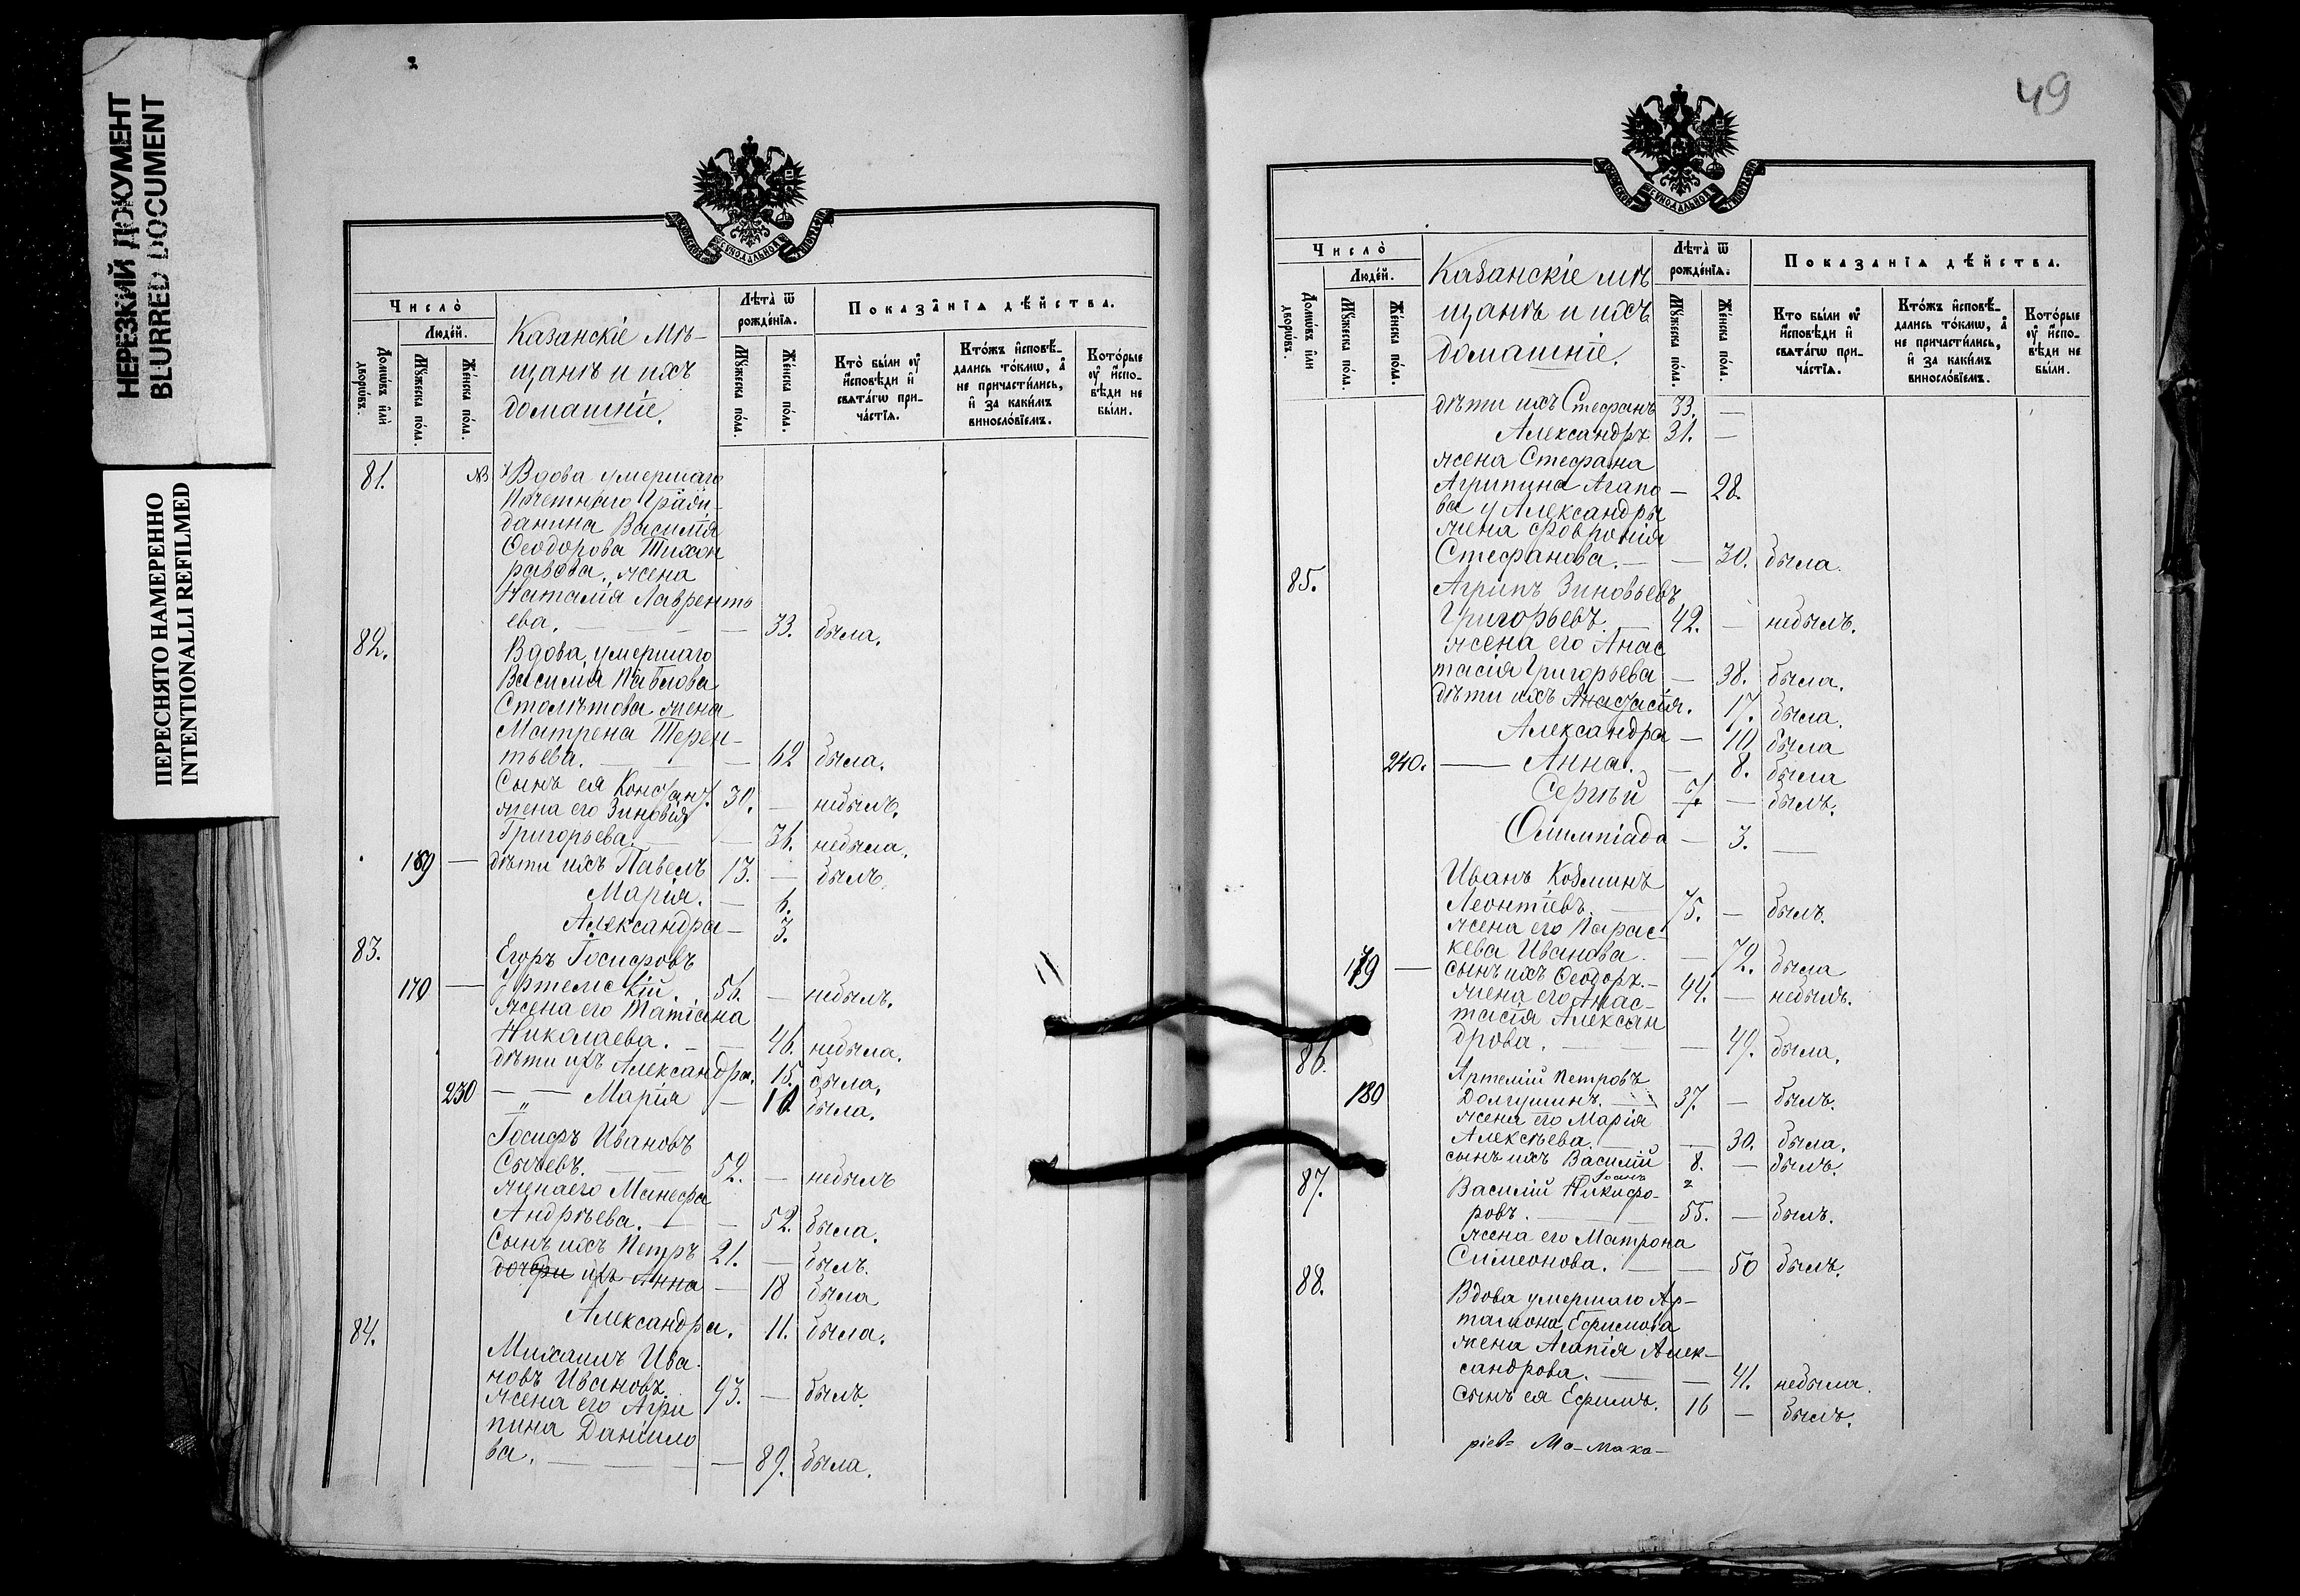 НЕРЕЗКИЙ ДОКУМЕНТ
BLURRED DOCUMENT
ПЕРЕСНЯТО НАМЕРЕННО
INTENTIONALLI REFILMED
Число̀
Люде́й.
Домѡ́въ и҆лѝ дворѡ́въ.
Мꙋ́жеска по́ла.
Же́нска по́ла.
Казанскіе Мѣ-
щанѣ и ихъ
домашніе.
Лѣта̀ ѿ
рожде́нїѧ.
Мꙋ́жеска по́ла.
Же́нска по́ла.
Показа̑нїѧ дѣ́йства.
Кто̀ бы́ли ᲂу҆
и҆сповѣ́ди и҆
свѧта́гѡ при-
ча́стїѧ.
Кто́жъ и҆сповѣ́-
дались то́кмѡ, а҆
не причасти́лись,
и҆ за каки́мъ
винослоᲂвїемъ.
Кото́рые
ᲂу҆ и҆спо-
вѣ́ди не
бы́ли.
81. № Вдова умершаго
Почетнаго Граж-
данина Василія
Ѳеодорова Тихон
равова, жена
Наталія Лавренть
ева. — 33. была.
82. Вдова, умершаго
Василія Павлова
Столѣтова жена
Матрена Терен-
тьева. — 62 была.
Сынъ ея Констан. 39. — небылъ.
жена его Зиновія
Григорьева. — 36. небыла.
169 — дѣти ихъ Павелъ 13. — былъ.
Марія. — 6.
Александра — 3.
83. Егоръ Іосифовъ
170 — Уртемскій. 56. — небылъ.
жена его Татіана
Николаева. — 46. небыла.
дѣти ихъ Александра. 15. была.
230 — — Марія — 11. была.
„ Іосифъ Ивановъ
Сычевъ. — 52. — небылъ
жена его Манефа
Андрѣева. — 52. была.
Сынъ ихъ Петръ 21. — былъ.
дочери ихъ Анна — 18 была
Александра. 11. была.
84. Михаилъ Ива-
новъ Ивановъ. 93. — былъ.
жена его Агри
пина Данило
ва. — 89. была.
49
Число̀
Люде́й.
Домѡ́въ и҆лѝ дворѡ́въ.
Мꙋ́жеска по́ла.
Же́нска по́ла.
Казанскіе мѣ
щанѣ и ихъ
домашніе.
Лѣта̀ ѿ
рожде́нїѧ.
Мꙋ́жеска по́ла.
Же́нска по́ла.
Показа̑нїѧ дѣ́йства.
Кто бы́ли ᲂу҆
и҆сповѣ́ди и҆
свѧта́гѡ при-
ча́стїѧ.
Кто́жъ и҆сповѣ́-
дались то́кмѡ, а҆
не причасти́лись,
и҆ за каки́мъ
винослоᲂвїемъ.
Кото́рые
ᲂу҆ и҆спо-
вѣ́ди не
бы́ли.
дѣти ихъ Стефанъ 33. —
Александръ 31. —
жена Стефана
Агрипина Агапо — 28.
ва у Александры
жена Февронія
Стефанова. — 30. была.
85. Агрипъ Зиновьевъ
Григорьевъ. — 42. — небылъ.
жена его Анас
тасія Григорьева — 38. была.
дѣти ихъ Анастасія. 17. была.
Александра — 10 была
240. — Анна. — 8. была
Сергѣй 7. — былъ.
Олимпіада — 3. —
Иванъ Козминъ
Леонтіевъ. — 75. — былъ.
жена его Парас-
кева Иванова. — 72. была
179 — сынъ ихъ Ѳеодоръ. — 44. — небылъ.
жена его Анас-
тасія Алексан
дрова. — 49. была.
86. Артемій Петровъ
180 Долгушинъ. 37. — былъ.
жена его Марія
Алексѣева. — 30. была.
сынъ ихъ Василій 8. — былъ.
Іоанъ 2
87. Василій Никифо-
ровъ. — 55. — былъ.
жена его Матрона
Симеонова. — 50 былъ.
88. Вдова умершаго Ар-
тамона Ефимова
жена Агапія Алек-
сандрова. — 41. небыла.
Сынъ ея Ефимъ. 16 — былъ.
ріев= Ма-Мака-